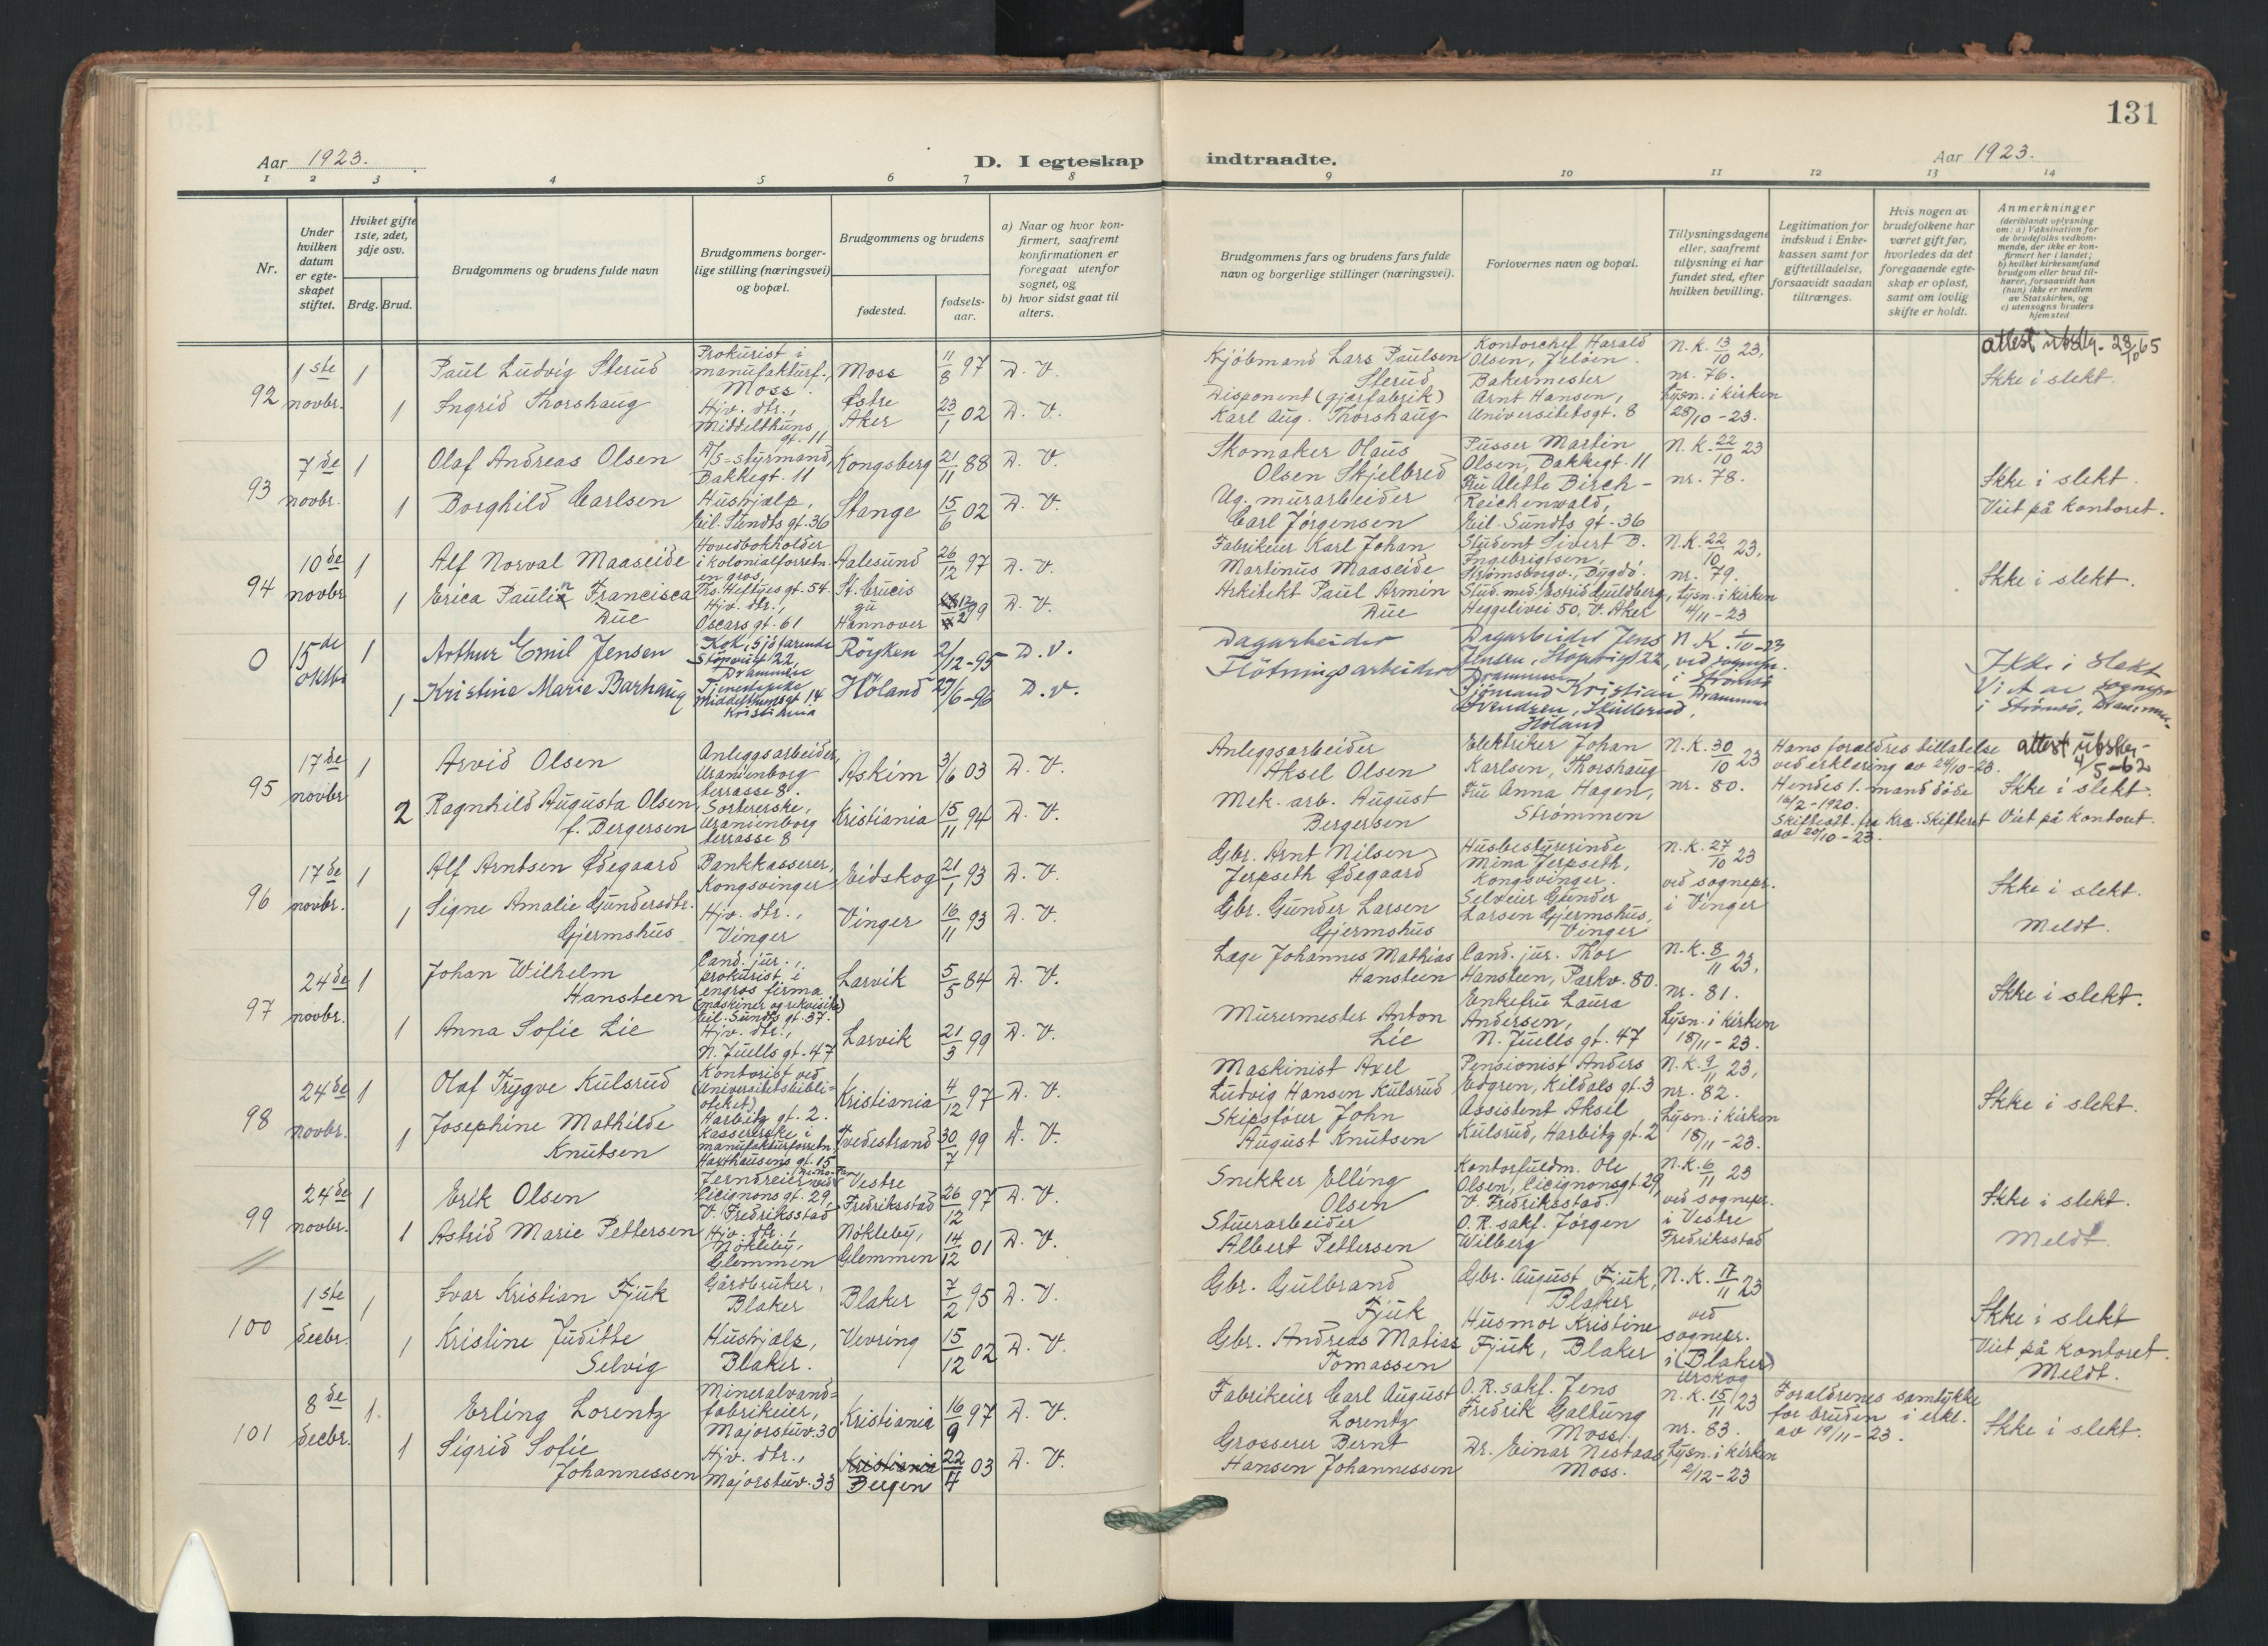 131
Aar 1923.
D. I egteskap indtraadte.
Aar 1923.
1 2 3 4 5 6 7 8 9 10 11 12 13 14
Nr.
Under
hvilken
datum
er egte-
skapet
stiftet.
Hviket gifte
1ste, 2det,
3dje osv.
Brdg. Brud.
Brudgommens og brudens fulde navn
Brudgommens borger-
lige stilling (næringsvei)
og bopæl.
Brudgommens og brudens
fødested.
fødsels-
aar.
a) Naar og hvor kon-
firmert, saafremt
konfirmationen er
foregaat utenfor
sognet, og
b) hvor sidst gaat til
alters.
Brudgommens fars og brudens fars fulde
navn og borgerlige stillinger (næringsvei).
Forlovernes navn og bopæl.
Tillysningsdagene
eller, saafremt
tillysning ei har
fundet sted, efter
hvilken bevilling.
Legitimation for
indskud i Enke-
kassen samt for
giftetilladelse,
forsaavidt saadan
tiltrænges.
Hvis nogen av
brudefolkene har
været gift før,
hvorledes da det
foregaaende egte-
skap er opløst,
samt om lovlig
skifte er holdt.
Anmerkninger
(deriblandt oplysning
om: a) Vaksination for
de brudefolks vedkom-
mende, der ikke er kon-
firmert her i landet;
b) hvilket kirkesamfund
brudgom eller brud til-
hører, forsaavidt han
(hun) ikke er medlem
av Statskirken, og
c) utensogns bruders
hjemsted
92
1ste
novbr.
1
Paul Ludvig Sterud
Prokurist i
manufakturf.,
Moss.
Moss
11/8 97
D. V.
Kjöbmand Lars Paulsen
Sterud
Kontorchef Harald
Olsen, Jelöen.
N.K. 13/10 23,
nr. 76.
Lysn. i kirken
28/10 - 23.
attest utstlg. 23/10 65
Ikke i slekt.
1
Ingrid Thorshaug
Hjv. dtr.,
Middelthuns
gt. 11
Østre
Aker
23/1 02
D. V.
Disponent (gjærfabrik)
Karl Aug. Thorshaug
Bakermester
Arnt Hansen,
Universitetsgt. 8
93
7de
novbr.
1
Olaf Andreas Olsen
D/S=styrmand,
Bakkegt. 11
Kongsberg
21/11 88
D. V.
Skomaker Olaus
Olsen Skjelbred
Pusser Martin
Olsen, Bakkegt. 11
N.K. 22/10 23
nr. 78.
Ikke i slekt.
Viet på kontoret.
1
Borghild Carlsen
Hushjælp,
Eil. Sundts gt. 36
Stange
15/6 02
D. V.
Ug. murarbeider
Carl Jörgensen
Fru Alette Birch-
Reichenwald,
Eil. Sundts gt. 36
94
10de
novbr
1
Alf Norval Maaseide
Hovedbokholder
i kolonialforretn.
en gros,
Ths. Heftyes gt. 54.
Aalesund
26/12 97
D. V.
Fabrikeier Karl Johan
Martinus Maaseide
Student Sivert B.
Ingebrigtsen,
Strömsborgv., Bygdö.
N.K. 22/10 23,
nr. 79.
Lysn. i kirken
4/11 - 23
Ikke i slekt.
1
Erica Paulin Francisca
Due
Hjv. dtr.,
Oscars gt. 61
St. Crucis
zu
Hannover
12/2 99
D. V.
Arkitekt Paul Armin
Due
Stud. med. Estrid Guldberg,
Heggelivei 50, V. Aker
0
15de
oktbr
1
Arthur Emil Jensen
Kok, sjöfarende
Störvigt 22,
Drammen
Röyken
2/12-95
D. V.
Dagarbeider
Dagarbeider Jens
Jensen, Störvigt 22,
Drammen
N.K. 1/10-23
ved sognepr.
i Strömsö
Drammen
Ikke i slekt
Viet av sognepr
i Strömsö, Drammen.
1
Kristine Marie Barhaug
Tjenestepike
Middelthunsgt 14
Kristiania
Höland
27/6-96
D. V.
Flötningsarbeider
Sjömand Kristian
Svendsen, Skullerud,
Höland
95
17de
novbr
1
Arvid Olsen
Anleggsarbeider,
Uranienborg
terrasse 8.
Askim
3/6 03
D. V.
Anleggsarbeider
Aksel Olsen
Elektriker Johan
Karlsen, Thorshaug
N.K. 30/10 23
nr. 80.
Hans forældres tillatelse
ved erklæring av 24/10-23.
attest utstlg.
4/5-62
Ikke i slekt.
Viet på kontoret.
2
Ragnhild Augusta Olsen,
f. Bergersen
Sortererske,
Uranienborg
terrasse 8
Kristiania
15/11 94
D. V.
Mek. arb. August
Bergersen
Fru Anna Hagen,
Strømmen
Hendes 1. mand döde
16/2-1920.
Skifteatt. fra Kra. Skifteret
av 20/10-23.
96
17de
novbr.
1
Alf Arntsen Ødegaard
Bankkasserer,
Kongsvinger
Eidskog
21/1 93
D. V.
Gbr. Arnt Nilsen
Jerpseth Ødegaard
Husbestyrerinde
Mina Jerpseth,
Kongsvinger.
N.K. 27/10 23
ved sognepr.
i Vinger
Ikke i slekt.
Meldt.
1
Signe Amalie Gundersdtr.
Gjermshus
Hjv. dtr.,
Vinger
Vinger
16/11 93
D. V.
Gbr. Gunder Larsen
Gjermshus
Selveier Gunder
Larsen Gjermshus,
Vinger
97
24de
novbr.
1
Johan Wilhelm
Hansteen
Cand. jur.,
prokurist i
engros firma
(maskiner og rekvisita)
Eil. Sundts gt. 37.
Larvik
5/5 84
D. V.
Læge Johannes Mathias
Hansteen
Cand. jur. Thor
Hansteen, Parkv. 80.
N.K. 8/11 23,
nr. 81.
Lysn. i kirken
18/11 - 23.
Ikke i slekt.
1
Anna Sofie Lie
Hjv. dtr.,
N. Juells gt. 47
Larvik
21/3 99
D. V.
Murermester Anton
Lie
Enkefru Laura
Andersen,
N. Juells gt. 47
98
24de
novbr.
1
Olaf Trygve Kulsrud
Kontorist ved
(Universitetsbibli-
oteket)
Harbitz gt. 2.
Kristiania
4/12 97
D. V.
Maskinist Axel
Ludvig Hansen Kulsrud
Pensionist Anders
Edgren, Kildals gt. 3
N.K. 9/11 23,
nr. 82.
Lysn. i kirken
18/11 - 23.
Ikke i slekt.
1
Josephine Mathilde
Knutsen
Kassererske i
manufakturforretn.
Haxthausens gt. 15
Tvedestrand
30/7 99
D. V.
Skipsförer John
August Knutsen
Assistent Aksel
Kulsrud, Harbitz gt. 2
99
24de
novbr.
1
Erik Olsen
Jerndreier ved
Cicignons gt. 29,
V. Fredriksstad
Vestre
Fredriksstad
26/12 97
D. V.
Snikker Elling
Olsen
Kontorfuldm. Ole
Olsen, Cicignonsgt. 29,
V. Fredriksstad.
N.K. 6/11 23
ved sognepr.
i Vestre
Fredriksstad
Ikke i slekt.
Meldt.
1
Astrid Marie Pettersen
Hjv. dtr.,
Nökleby,
Glemmen
Nökleby,
Glemmen
14/12 01
D. V.
Stuerarbeider
Albert Pettersen
O.R. sakf. Jörgen
Wilberg
100
1ste
decbr.
1
Ivar Kristian Fjuk
Gårdbruker,
Blaker
Blaker
7/2 95
D. V.
Gbr. Gulbrand
Fjuk
Gbr. August Fjuk,
Blaker
N.K. 17/11 23
ved
sognepr.
i (Blaker)
Urskog
Ikke i slekt
Viet på kontoret.
Meldt.
1
Kristine Juditte
Selvig
Hushjælp,
Blaker.
Vevring
15/12 02
D. V.
Gbr. Andreas Matias
Tomassen
Husmor Kristine
Fjuk, Blaker
101
8de
decbr.
1.
Erling Lorentz
Mineralvand=
fabrikeier,
Majorstuv. 30
Kristiania
16/9 97
D. V.
Fabrikeier Carl August
Lorentz
O.R. sakf. Jens
Fredrik Galtung
Moss.
N.K. 15/11 23
nr. 83.
Lysn. i kirken
2/12 - 23
Forældrenes samtykke
for bruden i erkl.
av 19/11 - 23.
Ikke i slekt.
1
Sigrid Sofie
Johannessen
Hjv. dtr.,
Majorstuv. 33
Kristiania
Bergen
22/4 03
D. V.
Grosserer Bernt
Hansen Johannessen
Dr. Einar Nestaas,
Moss.